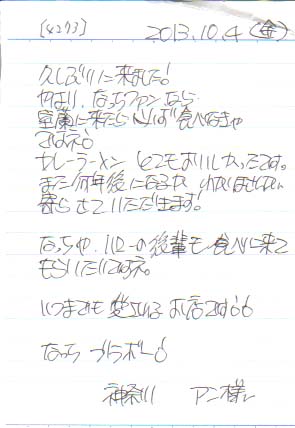 [4273] 2013.10.4(金)
久しぶりに来ました!
やはり、なっちファンなら
室蘭に来たら必ず食べなきゃ
ですね!
カレーラーメン とてもおいしかったです。
また何年後になるか わかりませんが、
寄らせていただきます!
なっちや、ハローの後輩も食べに来て
もらいたいですね。
いつまでも 愛される お店で
なっち ブラボー!
神奈川 アン様